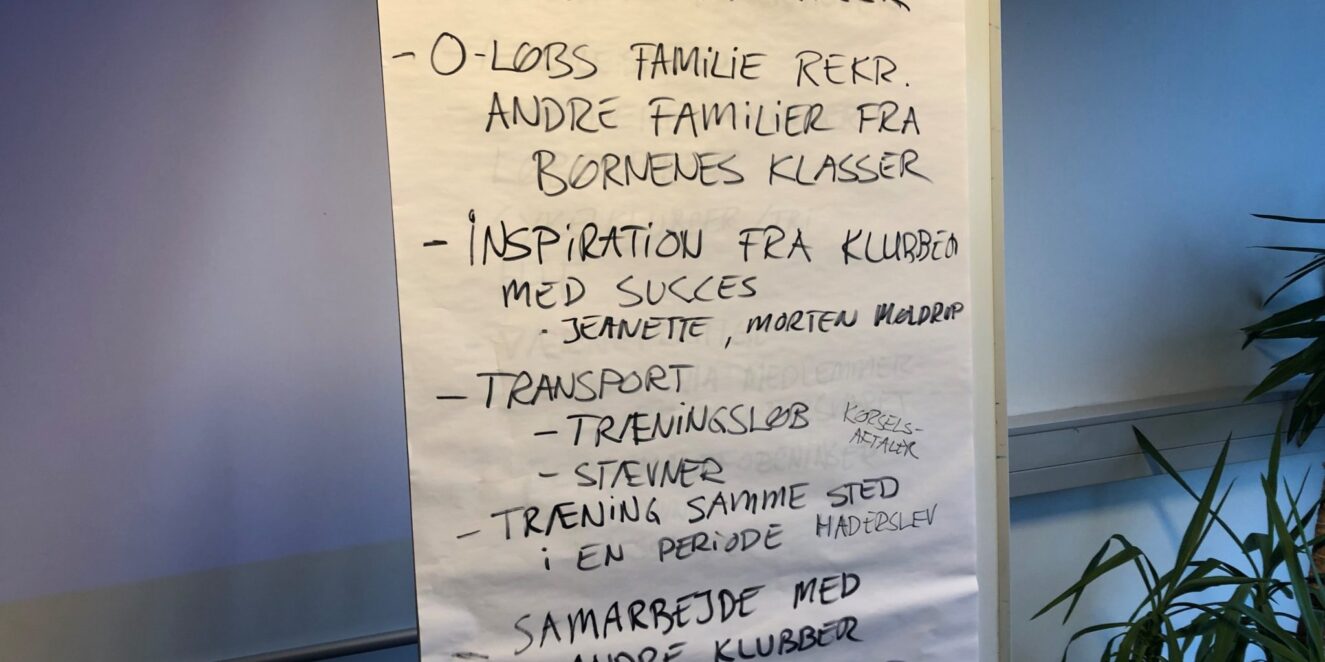 - O-LØBS FAMILIE REKR.
ANDRE FAMILIER FRA
BØRNENES KLASSER
- INSPIRATION FRA KLUBBER
MED SUCCES
· JEANETTE, MORTEN MØLDRUP
- TRANSPORT
- TRÆNINGSLØB KØRSELS-
AFTALER
- STÆVNER
- TRÆNING SAMME STED
I EN PERIODE HADERSLEV
- SAMARBEJDE MED
ANDRE KLUBBER